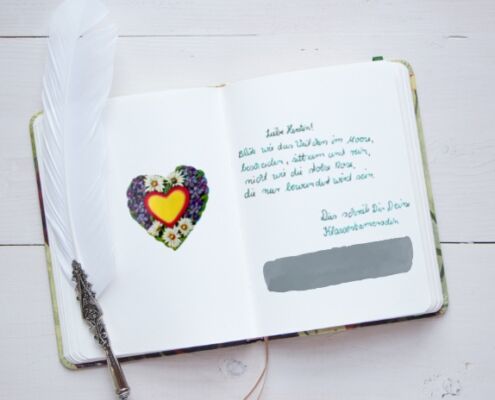 Liebe Kerstin!
Blüh wie das Veilchen im Moose,
bescheiden, sittsam und rein,
nicht wie die stolze Rose,
die nur bewundert wird sein.
Das schrieb Dir Deine
Klassenkameradin